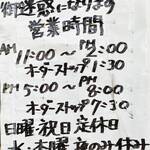 御迷惑になります
営業時間
AM 11:00～PM 2:00
オーダーストップ 1:30
PM 5:00～PM 8:00
オーダーストップ 7:30
日曜・祝日 定休日
水・木曜 夜のみ休み